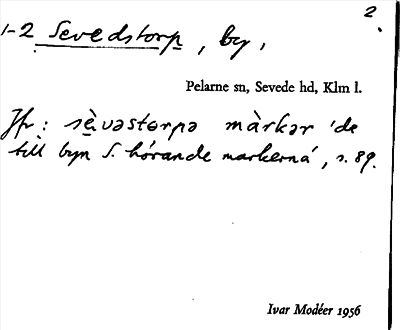 2.
1-2 Sevedstorp, by,
Pelarne sn, Sevede hd, Klm l.
Jfr: sèvəstɵrpə màrkər 'de
till byn S. hörande markerna', s. 89.
Ivar Modéer 1956